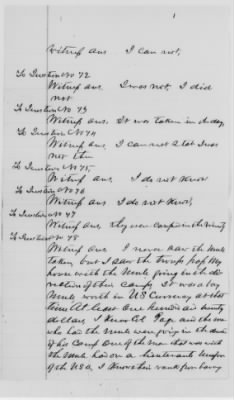 1
Witness ans I can not,
To Question No 72
Witness ans. I was not, I did
not
To Question No 73
Witness ans. It was taken in the day
To Question No 74
Witness ans. I can not state I was
not there
To Question No 75,
Witness ans. I do not know
To Question No 76
Witness ans I do not know,
To Question No 77
Witness ans, they were camped in the vicinity
To Question No 78
Witness ans I never saw the mule
taken but I saw the troops pass my
house with the mule going in the di
rection of their camp, It was a bay
mule worth in US Currency at that
time at least one hundred and
dollars I know Col Page and the one
who had the mule were going in the
of his camp One of the men that was with
the mule had on a Lieutenants uniform
of the USA, I know his rank from having